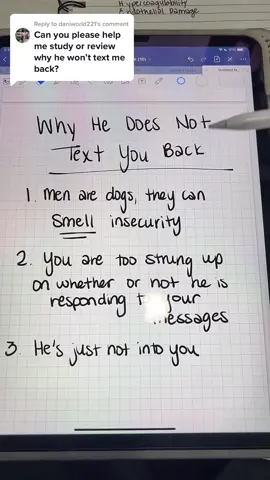 Hypercoagulability
Endothelial Damage
Reply to daniworld221's comment
Can you please help
me study or review
why he won't text me
back?
Why He Does Not
Text You Back
1. men are dogs, they can
smell insecurity
2. You are too strung up
on whether or not he is
responding to your
messages
3. He's just not into you